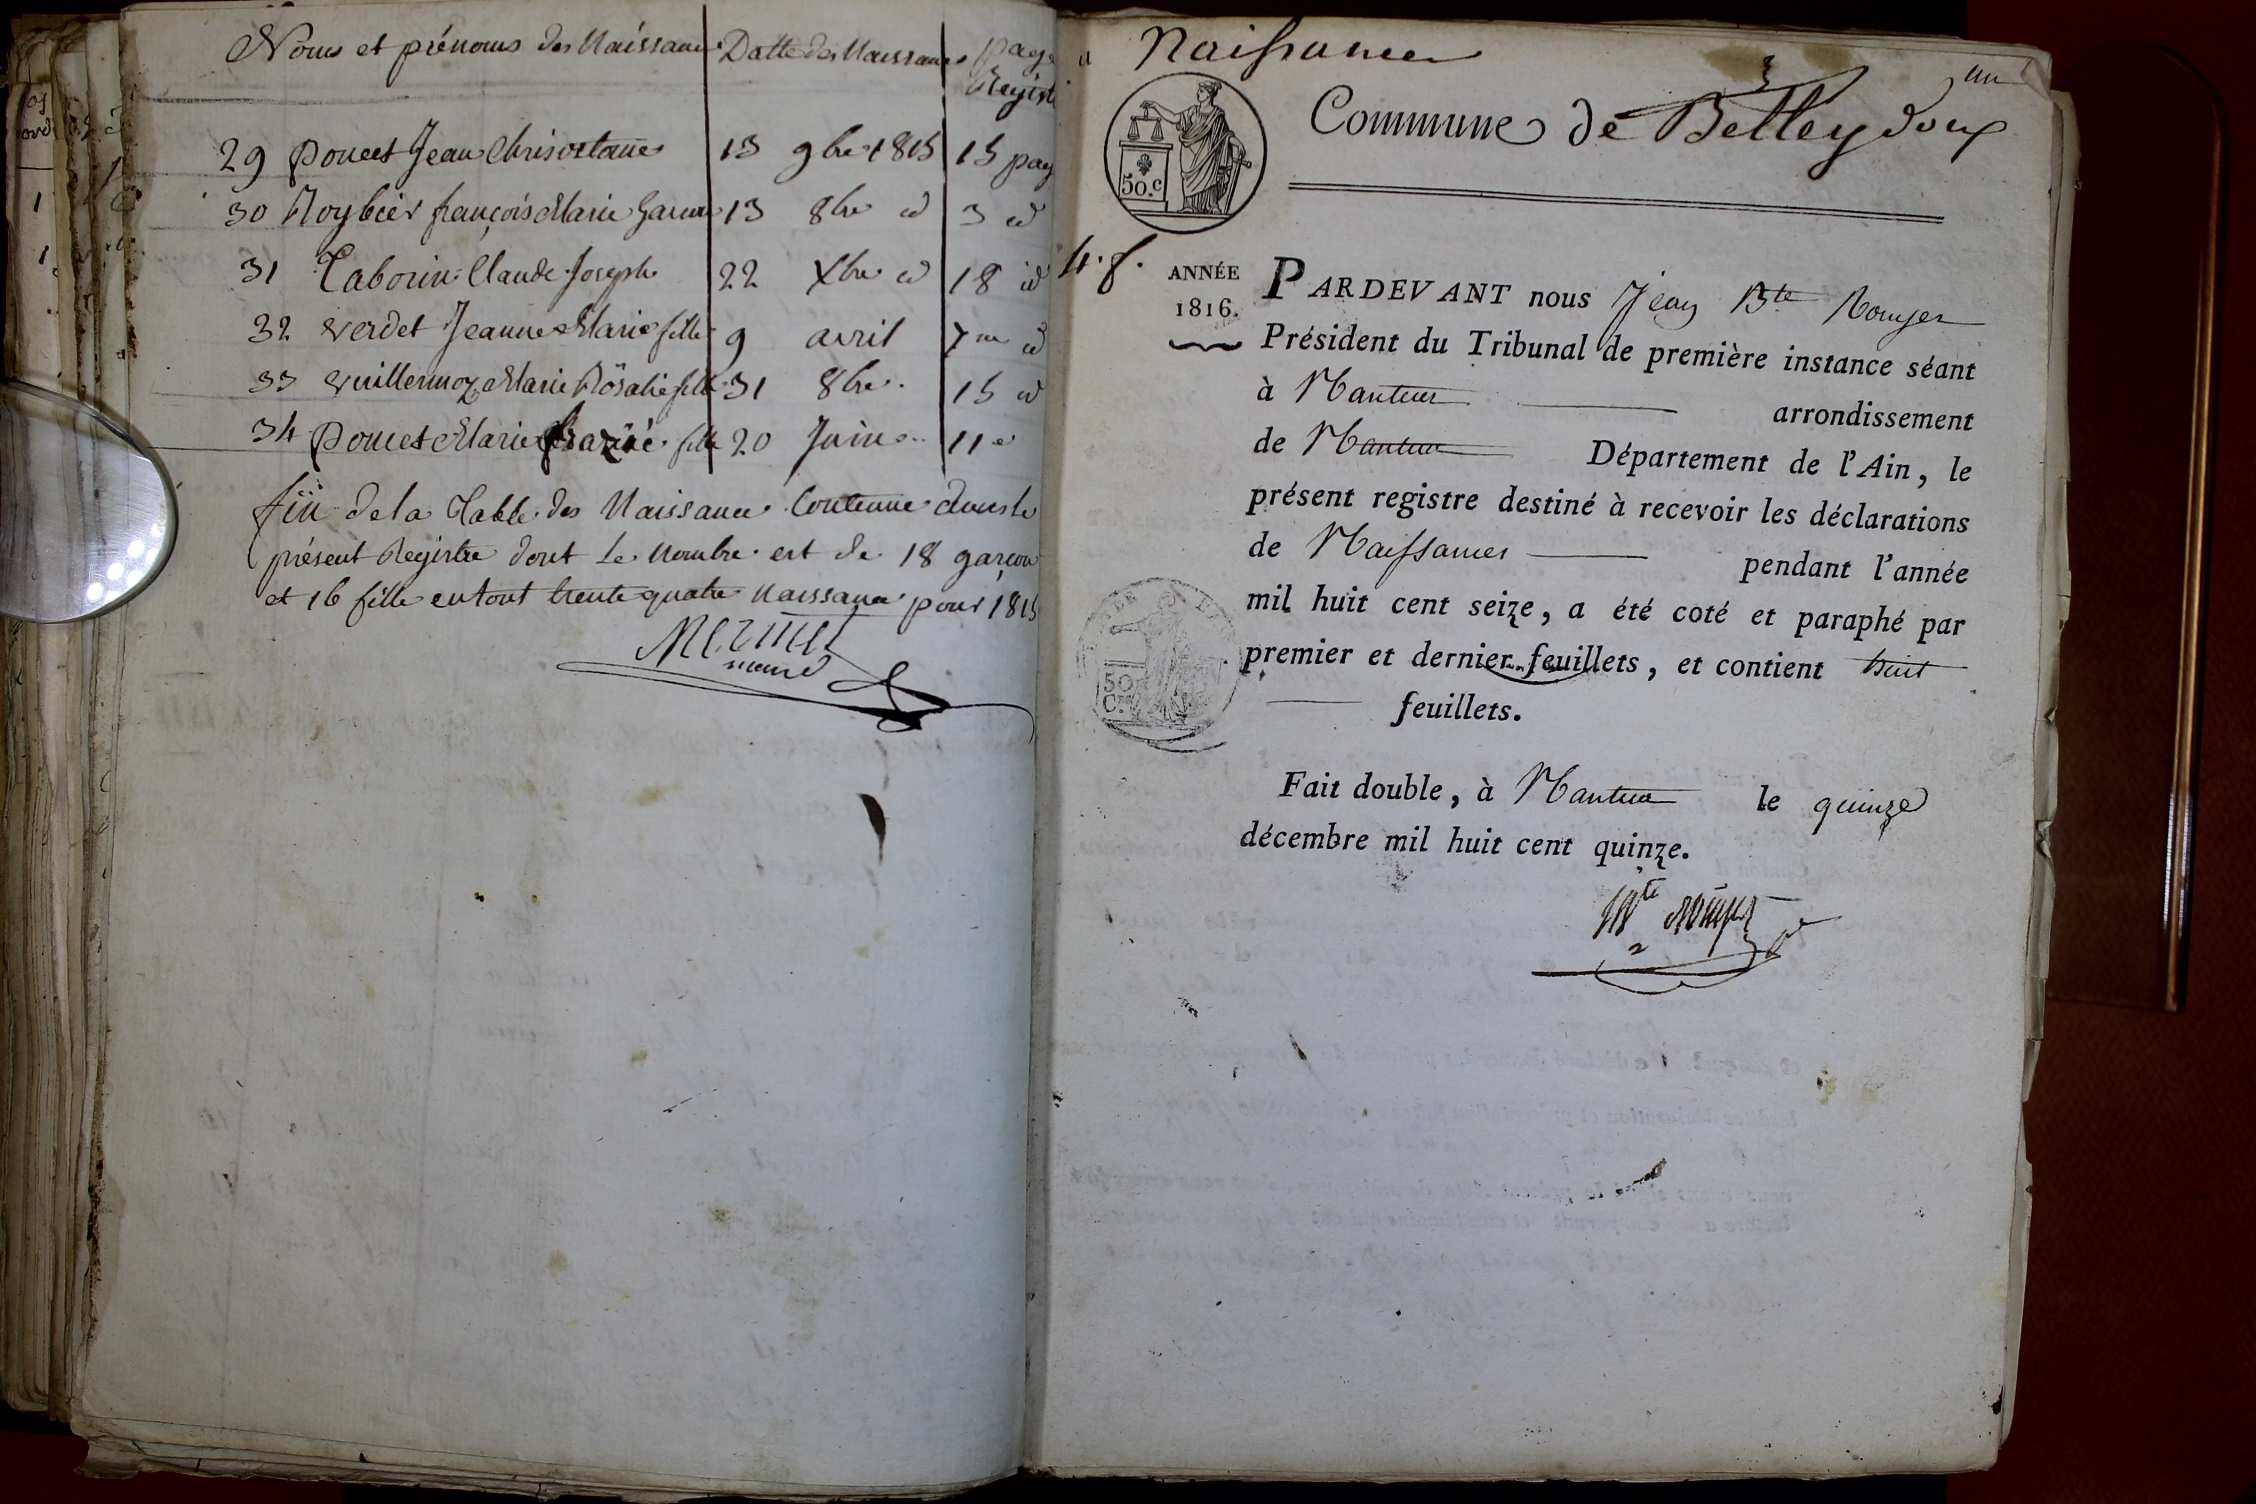 Noms et prénoms des Naissance Datte des Naissance page
Regist
29 poncet Jean Chrisostome 13 9bre 1815 15 pag
30 Roybier françois Marie Garcon 13 8bre id 3 id
31 Taborin Claude Joseph 22 Xbre id 18 id
32 verdet Jeanne Marie fille 9 avril 7me id
33 vuillermoz Marie Rosalie fille 31 8bre 15 id
34 poncet Marie fille 20 Juin 11 id
fin de la Table des Naissance Contenue dans le
présent Registre dont le Nombre est de 18 garcon
et 16 fille en tout trente quatre Naissance pour 1815
maire
Naissances
un
50.c
Commune de Belleydoux
4.f.
ANNÉE
1816.
PARDEVANT nous Jean Bte Rouyer
Président du Tribunal de première instance séant
à Nantua arrondissement
de Nantua Département de l'Ain, le
présent registre destiné à recevoir les déclarations
de Naissances pendant l'année
mil huit cent seize, a été coté et paraphé par
premier et dernier feuillets, et contient huit
feuillets.
50
Cs
Fait double, à Nantua le quinze
décembre mil huit cent quinze.
JBte Rouyer